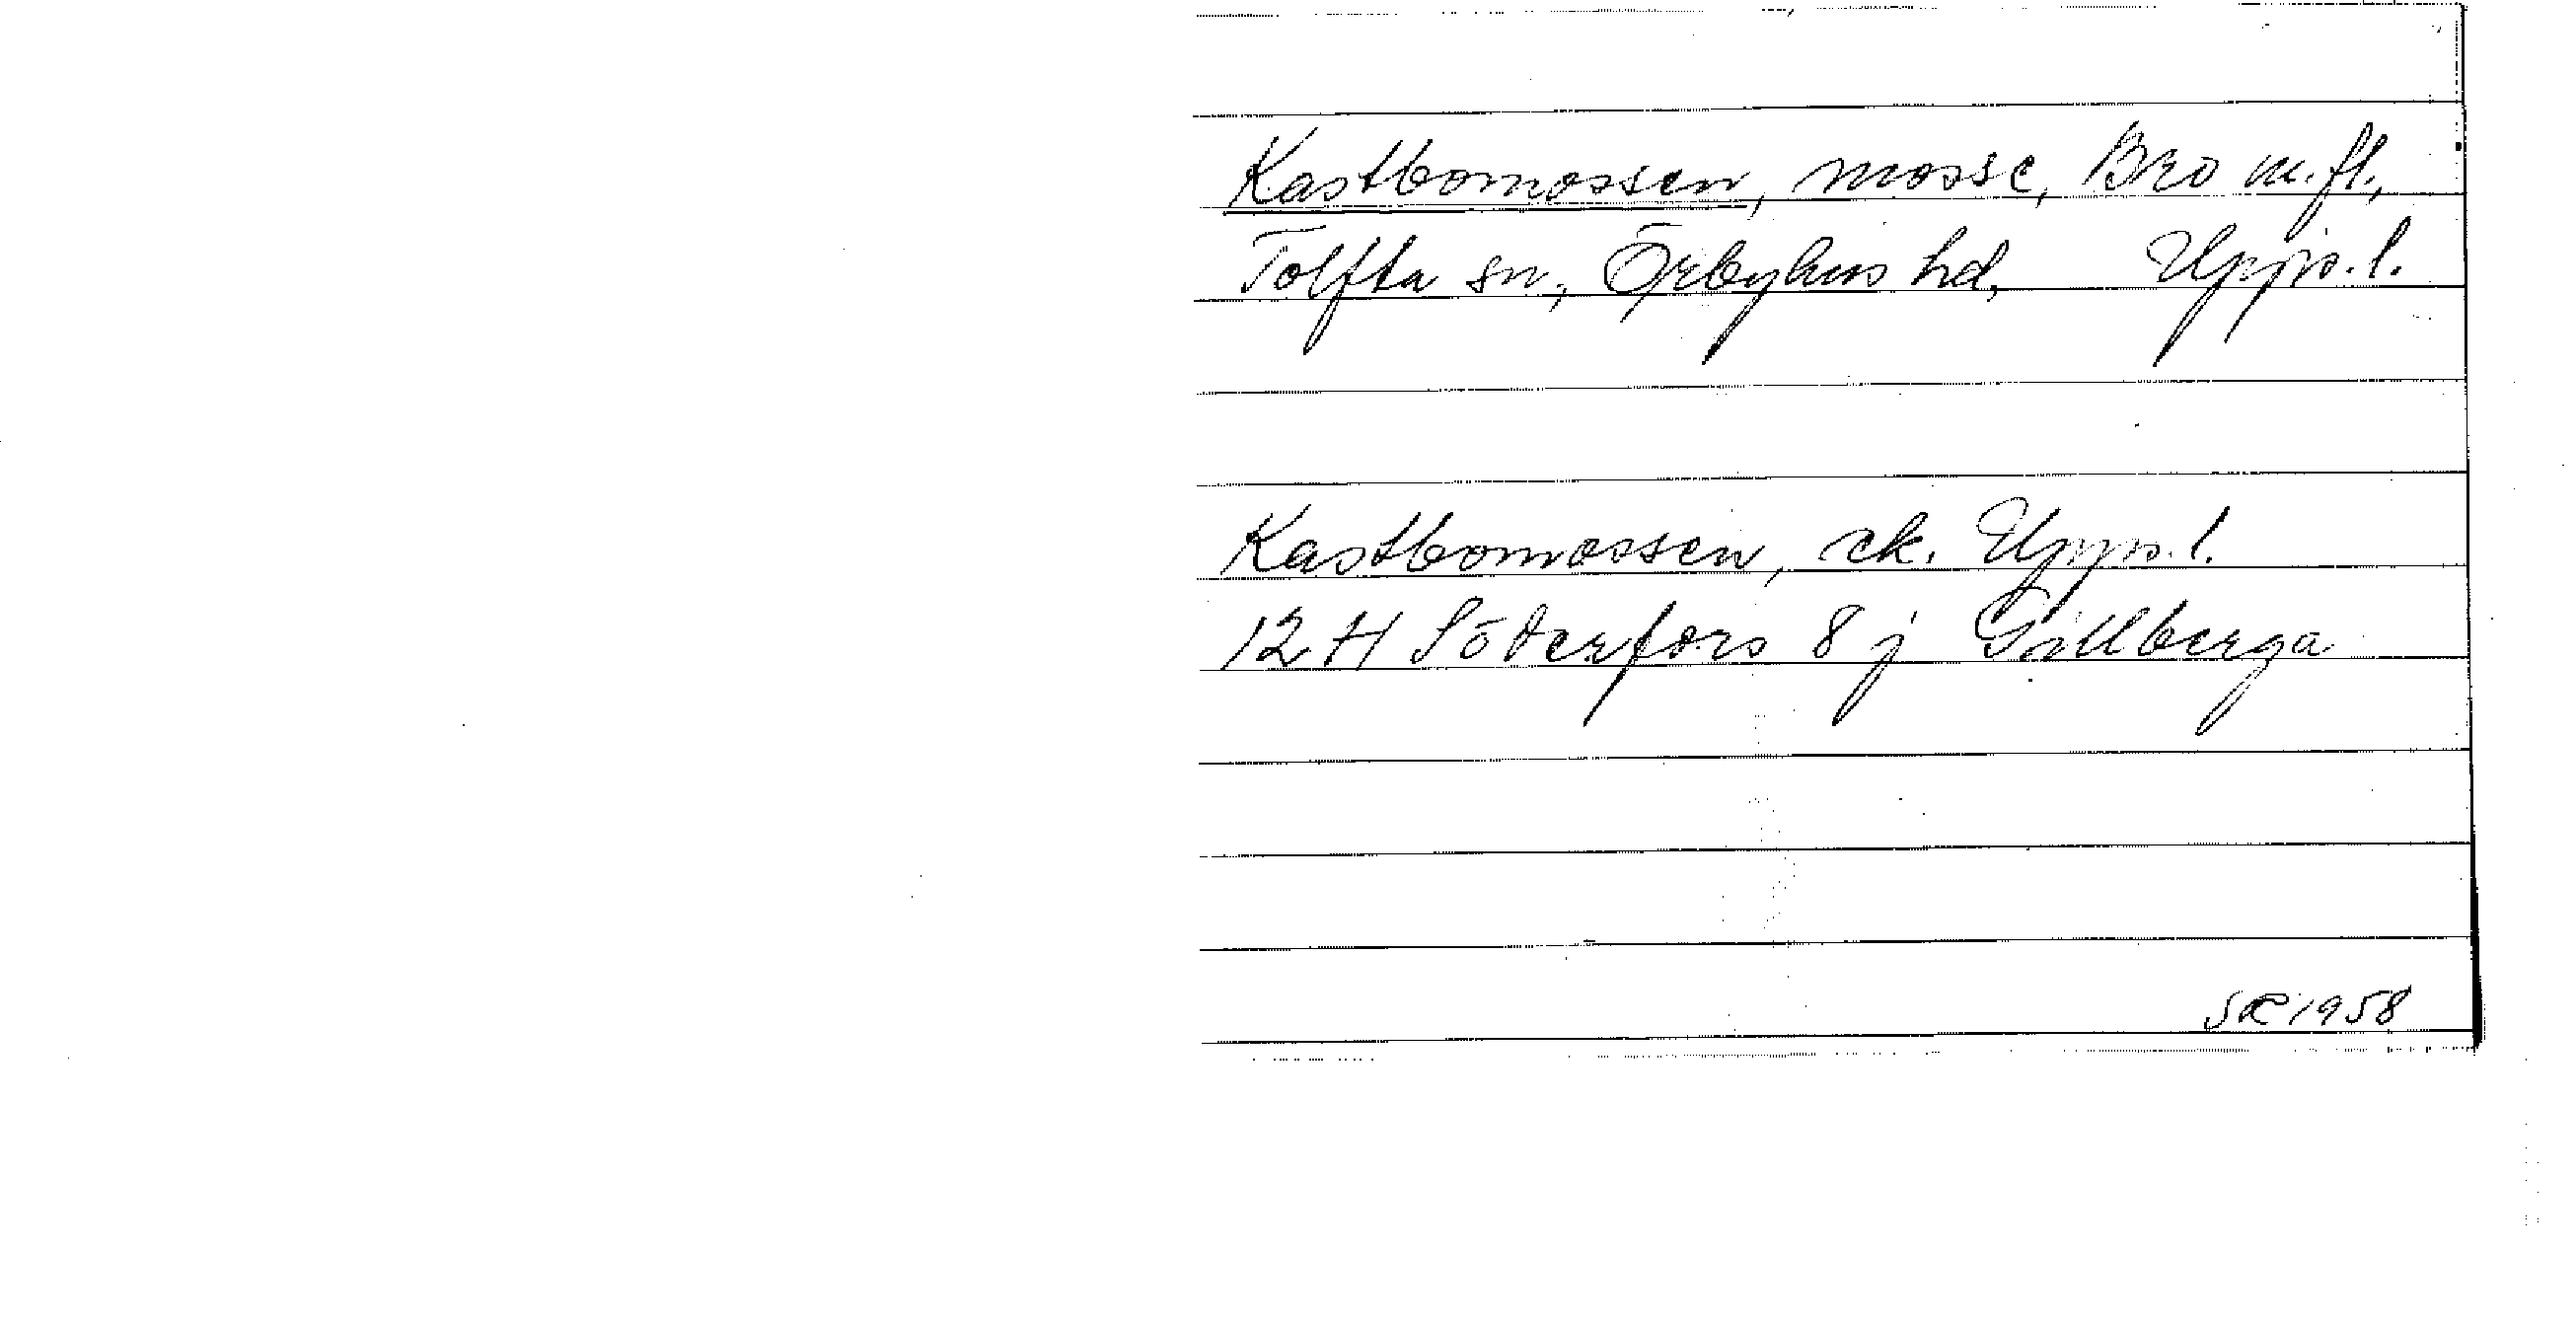 Kastbomossen, mosse, Bro m.fl.,
Tolfta sn, Örbyhus hd, Upps.l.
Kastbomossen, ek. Upps.l.
12 H Söderfors 8 j Gillberga
SR 1958